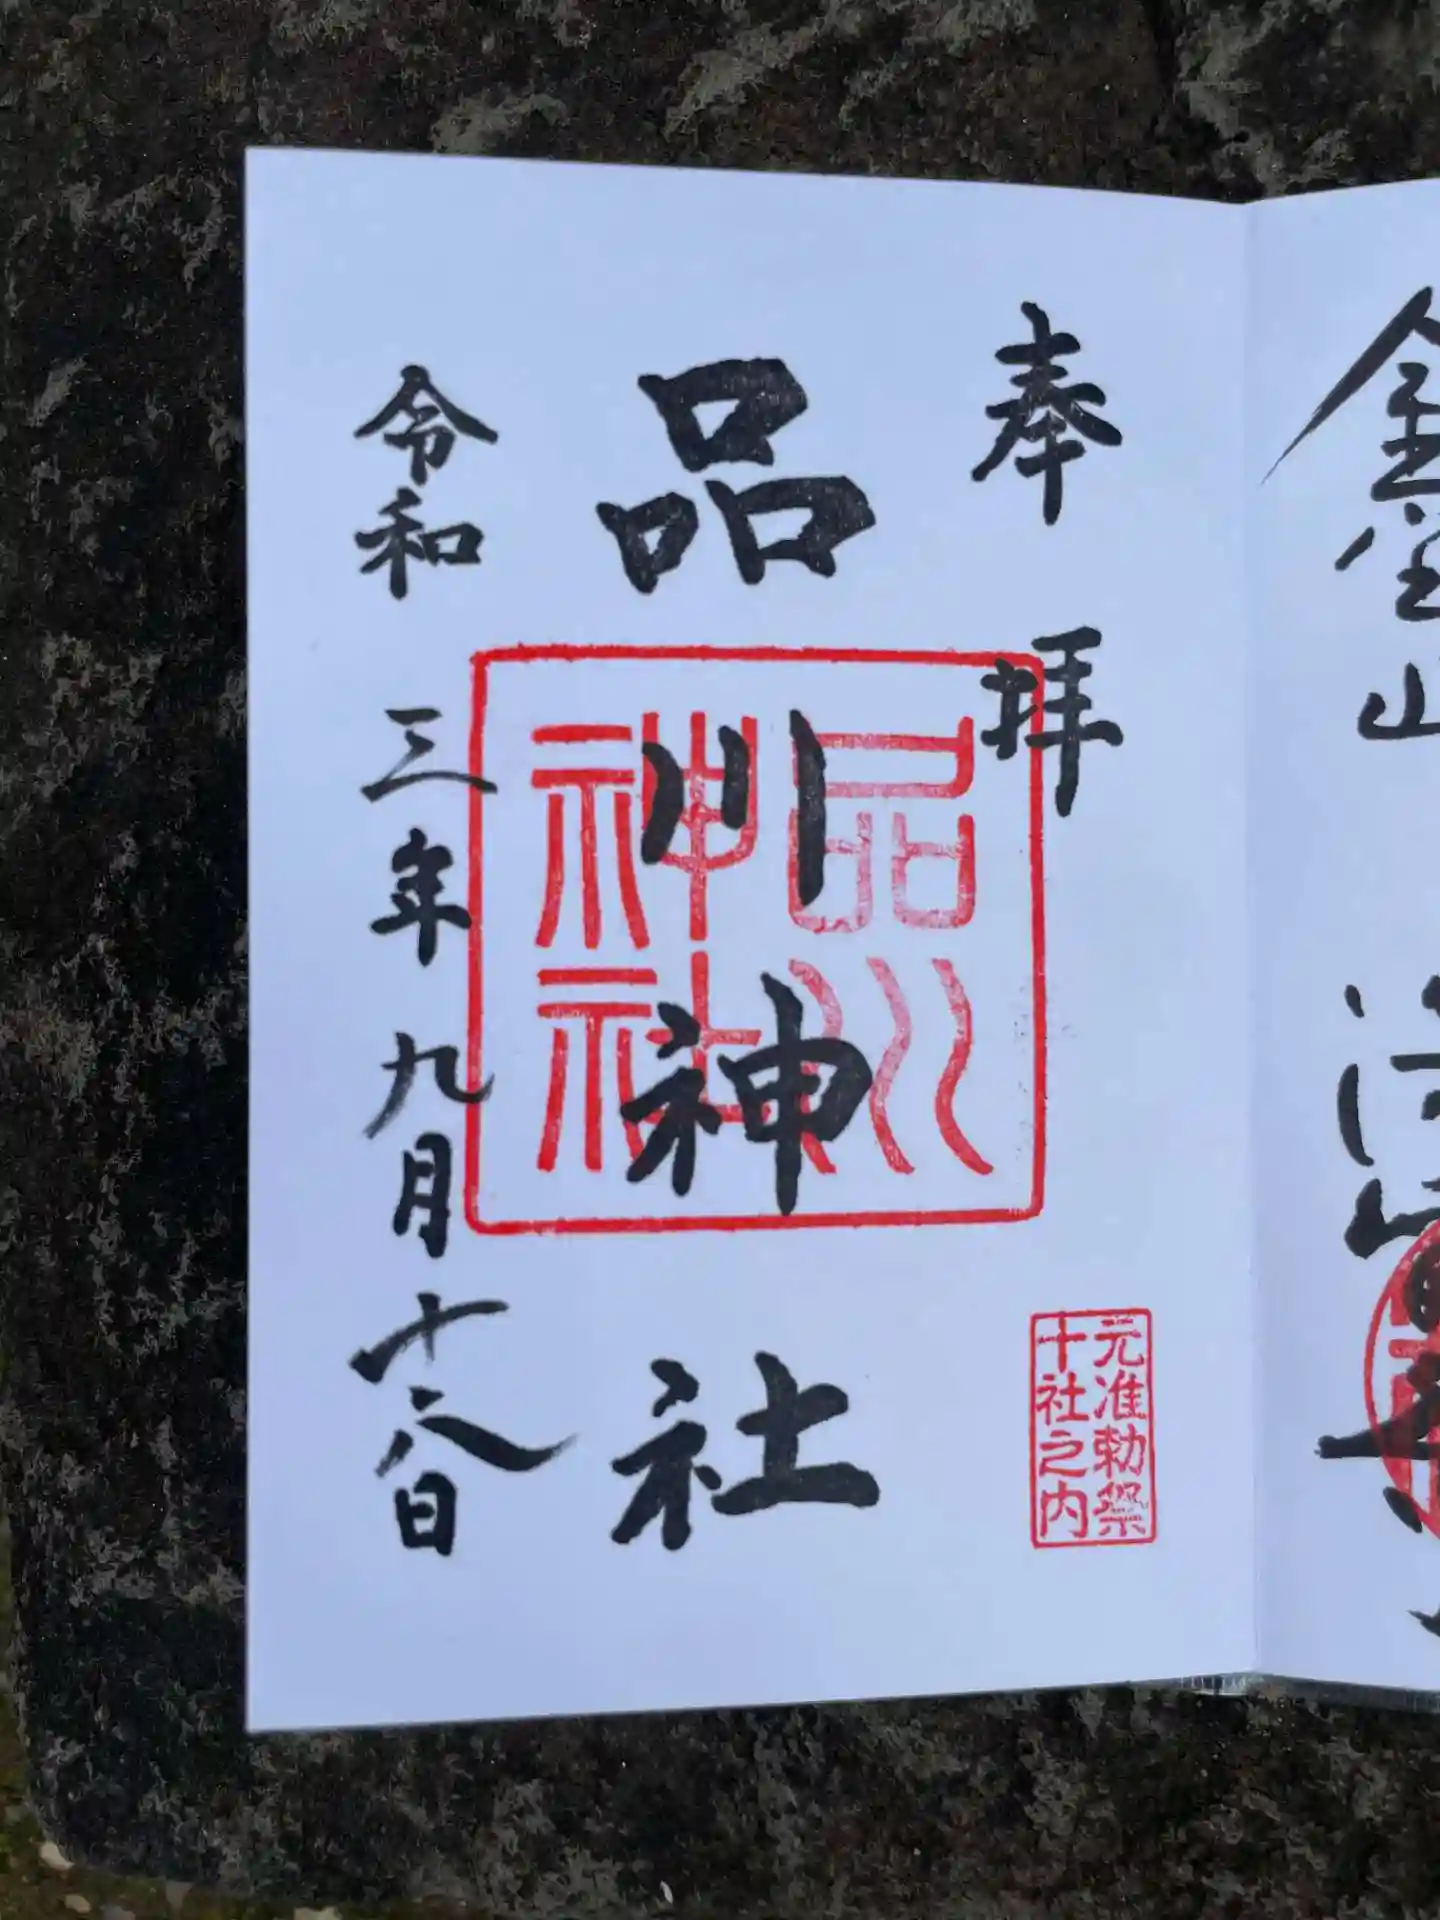 金
山
奉拝
品川神社
令和三年九月十八日
品川
神社
元准勅祭
十社之内